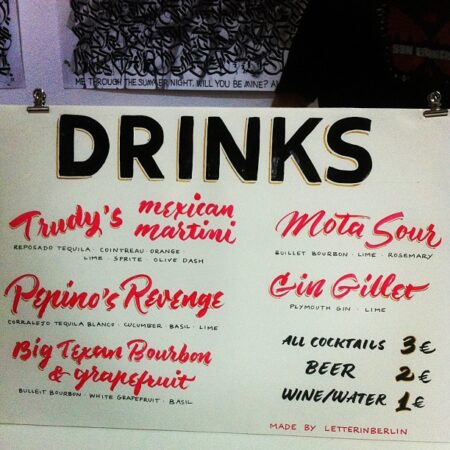 ME THROUGH THE SUMMER NIGHT. WILL YOU BE MINE?
DRINKS
Trudy's mexican martini
REPOSADO TEQUILA · COINTREAU ORANGE ·
LIME · SPRITE · OLIVE DASH
Pepino's Revenge
CORRALEJO TEQUILA BLANCO · CUCUMBER BASIL · LIME
Big Texan Bourbon
& grapefruit
BULLEIT BOURBON · WHITE GRAPEFRUIT · BASIL
Mota Sour
BULLEIT BOURBON · LIME · ROSEMARY
Gin Gillet
PLYMOUTH GIN · LIME
ALL COCKTAILS 3€
BEER 2€
WINE/WATER 1€
MADE BY LETTERINBERLIN